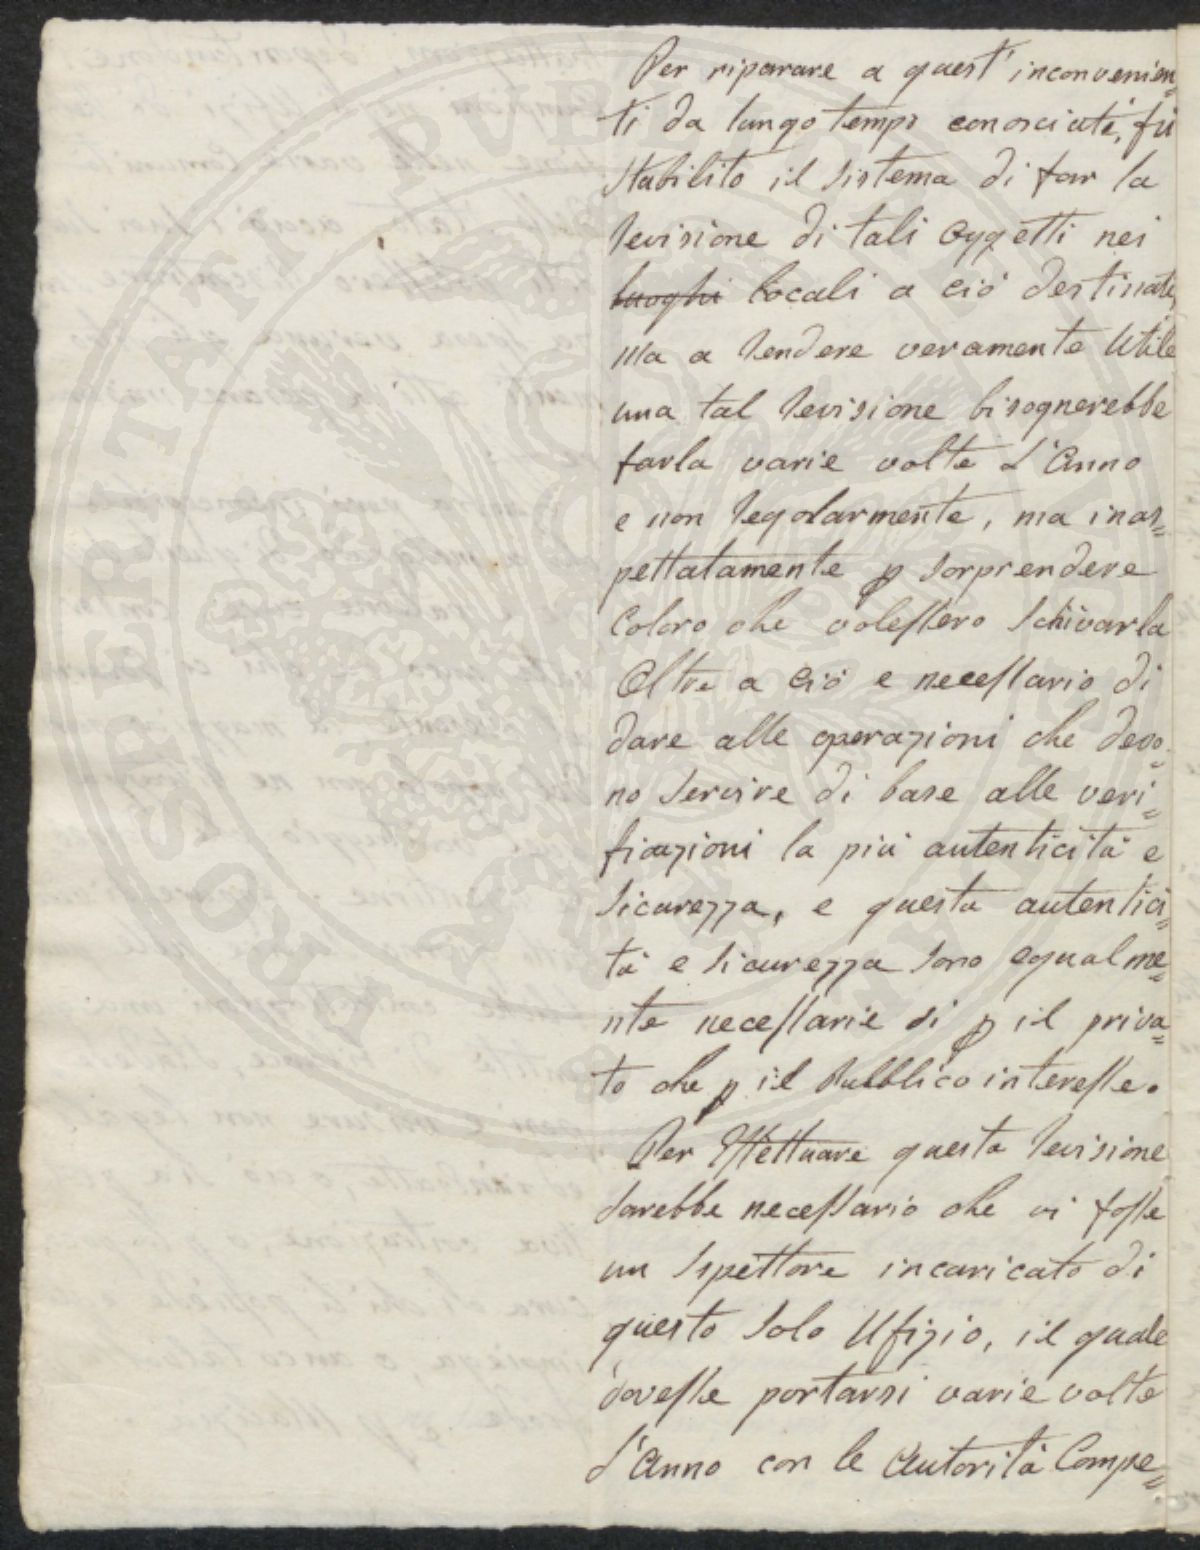 Per riparare a quest' inconvenien=
ti da lungo tempo conosciuti, fù
stabilito il sistema di far la
revisione di tali oggetti nei
luoghi locali a ciò destinati,
ma a rendere veramente utile
una tal revisione bisognerebbe
farla varie volte l'Anno
e non regolarmente, ma inas=
pettatamente p sorprendere
Coloro che volessero schivarla
Oltre a ciò e necessario di
dare alle operazioni che devo=
no servire di base alle veri=
ficazioni la più autenticità e
sicurezza, e questa autentici=
tà e sicurezza sono egualme=
nte necessarie si p il priva=
to che p il Pubblico interesse.
Per effettuare questa revisione
sarebbe necessario che vi fosse
un Ispettore incaricato di
questo solo Ufizio, il quale
dovesse portarsi varie volte
l'Anno con le Autorità Compe=
PROSPERITATI PUBLICAE